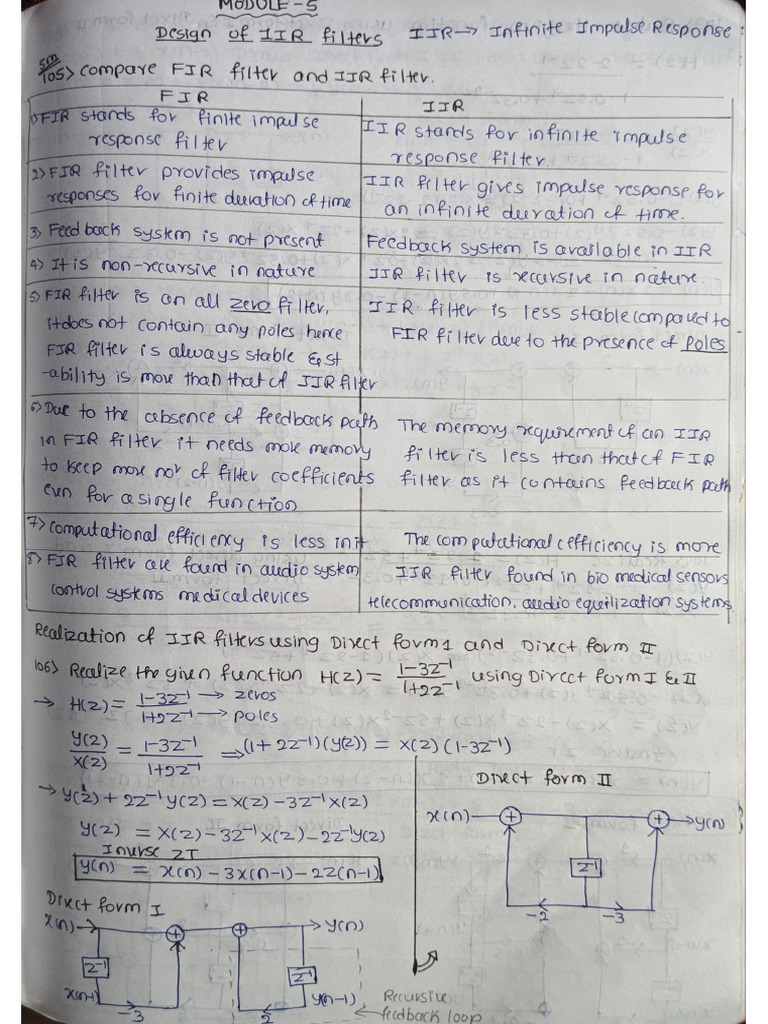 MODULE-5
Design of IIR filters IIR→ Infinite Impulse Response:
5m
105> compare FIR filter and IIR filter.
FIR
IIR
1) FIR stands for finite impulse
response filter
IIR stands for infinite impulse
response filter.
2) FIR filter provides impulse
responses for finite duration of time
IIR filter gives impulse response for
an infinite duration of time.
3) Feed back system is not present
Feedback system is available in IIR
4) It is non-recursive in nature
IIR filter is recursive in nature
5) FIR filter is an all zero filter,
it does not contain any poles hence
FIR filter is always stable & st
-ability is more than that of IIR filter
IIR filter is less stable compared to
FIR filter due to the presence of poles
6) Due to the absence of feedback path
in FIR filter it needs more memory
to keep more no. of filter coefficients
even for a single function
The memory requirement of an IIR
filter is less than that of FIR
filter as it contains feedback path
7) computational efficiency is less in it
The computational efficiency is more
8) FIR filter are found in audio system
control systems medical devices
IIR filter found in bio medical sensors
telecommunication, audio equilization systems
Realization of IIR filters using Direct form 1 and Direct form II
106) Realize the given function H(z) = 1-3z⁻¹/1+2z⁻¹ using Direct form I & II
→ H(z) = 1-3z⁻¹ → zeros
1+2z⁻¹ → poles
Y(z)/X(z) = 1-3z⁻¹/1+2z⁻¹ ⇒ (1+2z⁻¹)(Y(z)) = X(z)(1-3z⁻¹)
→ Y(z) + 2z⁻¹ Y(z) = X(z) - 3z⁻¹ X(z)
Y(z) = X(z) - 3z⁻¹ X(z) - 2z⁻¹ Y(z)
Inverse ZT
y(n) = x(n) - 3x(n-1) - 2z(n-1)
Direct form I
x(n) → + + → y(n)
z⁻¹ z⁻¹
x(n-1) -3 2 y(n-1)
Recursive
feedback loop
Direct form II
x(n) + + → y(n)
z⁻¹
-2 -3